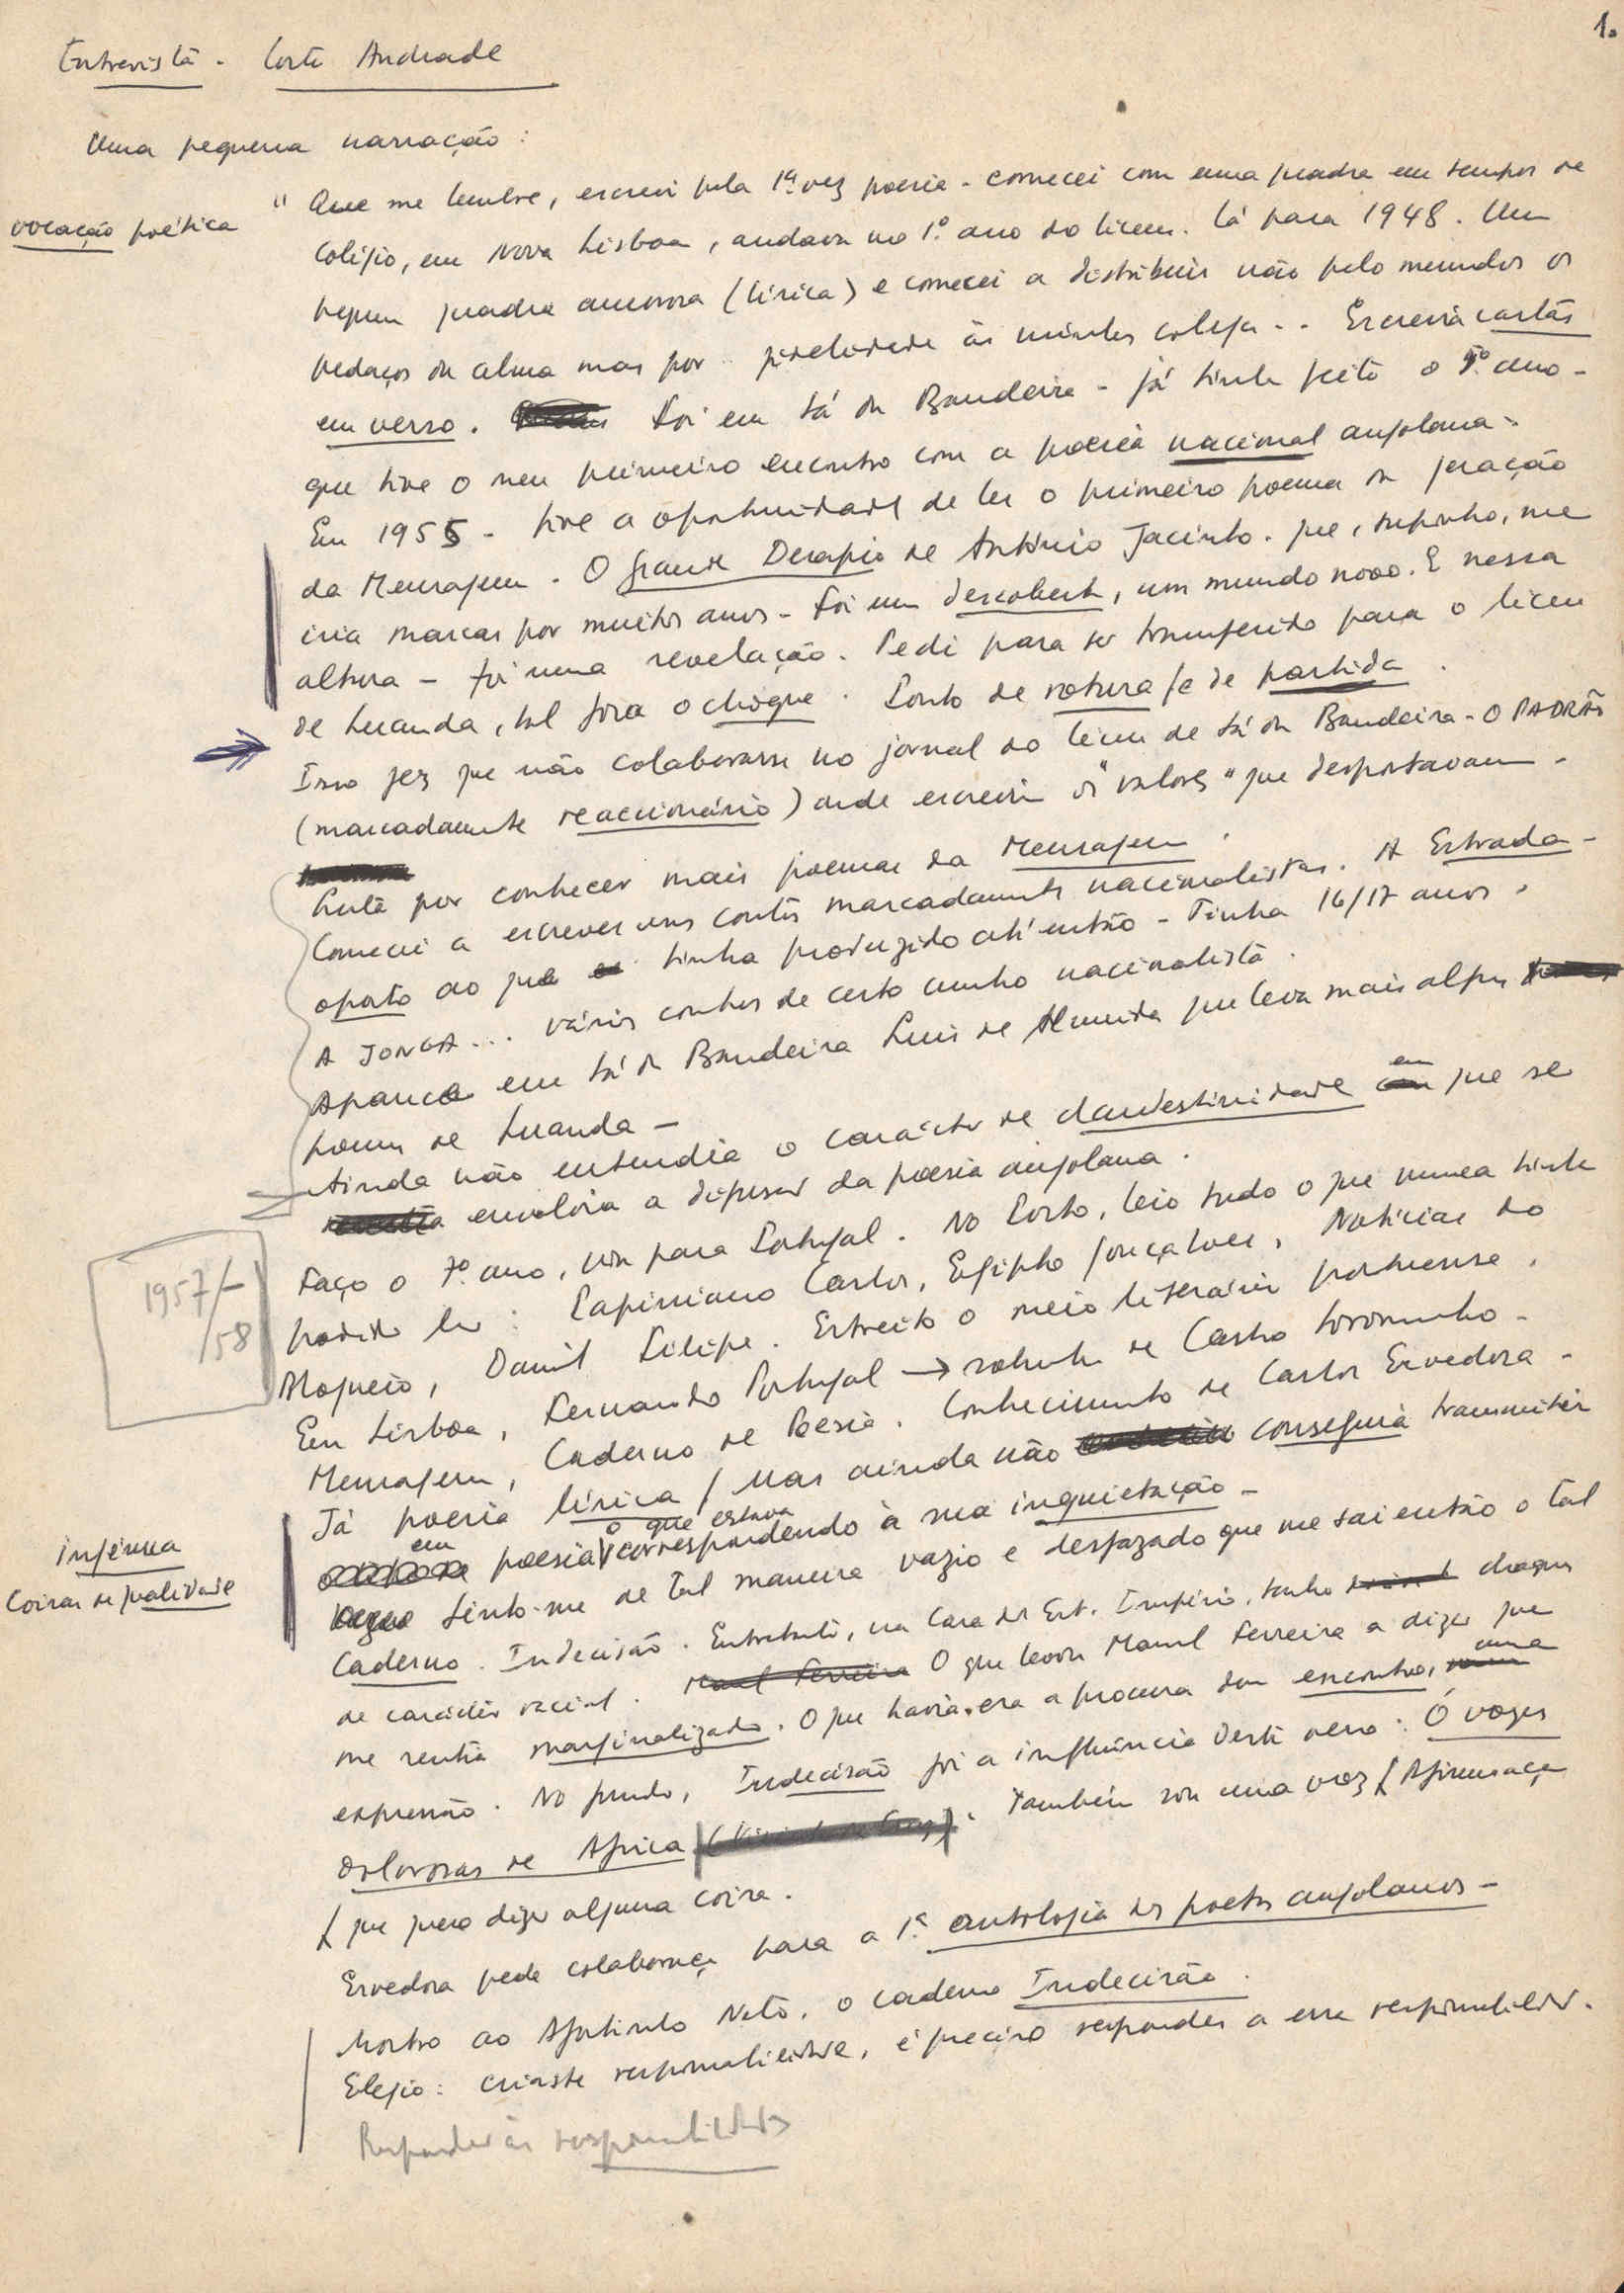 1.
Entrevista - Costa Andrade
Uma pequena narração:
vocação poética
" Que me lembre, escrevi pela 1ª vez poesia - comecei com uma quadra em tempos de
Colégio, em Nova Lisboa, andava no 1º ano do liceu. Lá para 1948. Um
pequena quadra amorosa (lírica) e comecei a distribuir não pelo mundo os
pedaços da alma mas por fidelidade às minhas colegas.. Escrevia cartas
em verso. Foi em Sá da Bandeira - já tinha feito o 5º ano -
que tive o meu primeiro encontro com a poesia nacional angolana.
Em 1955 - tive a oportunidade de ler o primeiro poema da geração
da Mensagem. O Grande Desafio de António Jacinto. que, suponho, me
iria marcar por muitos anos - Foi um descoberta, um mundo novo. E nessa
altura - foi uma revelação. Pedi para ser transferido para o liceu
de Luanda, tal fora o choque. Ponto de rotura / e de partida.
Isso fez que não colaborasse no jornal do liceu de Sá da Bandeira - O PADRÃO
(marcadamente reaccionário) onde escreviam os "valores" que despontavam -
Luta por conhecer mais poemas da Mensagem.
Comecei a escrever uns contos marcadamente nacionalistas. A Estrada -
oposto ao que tinha produzido até então - Tinha 16/17 anos.
A JONGA... vários contos de certo cunho nacionalista.
Aparece em Sá da Bandeira Luís de Almeida que leva mais alguns
poemas de Luanda -
Ainda não entendia o carácter de clandestinidade em que se
envolvia a difusão da poesia angolana.
1957/-
/58
Faço o 7º ano, vim para Portugal. No Porto, leio tudo o que nunca tinha
podido ler: Papiniano Carlos, Egipto Gonçalves, Notícias do
Bloqueio, Daniel Filipe. Estreito o meio literário portuense.
Em Lisboa, Fernando Portugal → sobrinho de Castro Soromenho -
Mensagem, Caderno de Poesia. Conhecimento de Carlos Ervedosa -
Já poesia lírica / Mas ainda não conseguia transmitir
em poesia o que estava correspondendo à sua inquietação -
Infância
Coisas de qualidade
Sinto-me de tal maneira vazio e desfazado que me sai então o tal
Caderno. Indecisão. Entretanto, na Casa dos Est. Império, tenho choques
de carácter racial. O que levou Manuel Ferreira a dizer que
me sentia marginalizado. O que havia, era a procura dum encontro, uma
expressão. No fundo, Indecisão foi a influência deste verso: Ó vozes
dolorosas de África. Também sou uma voz [Afirmação
[ que quero dizer alguma coisa.
Ervedosa pede colaboração para a 1ª antologia dos poetas angolanos -
Mostro ao Agostinho Neto, o caderno Indecisão.
Elogio: criaste responsabilidade, é preciso responder a essa responsabilidade.
Responder às responsabilidades